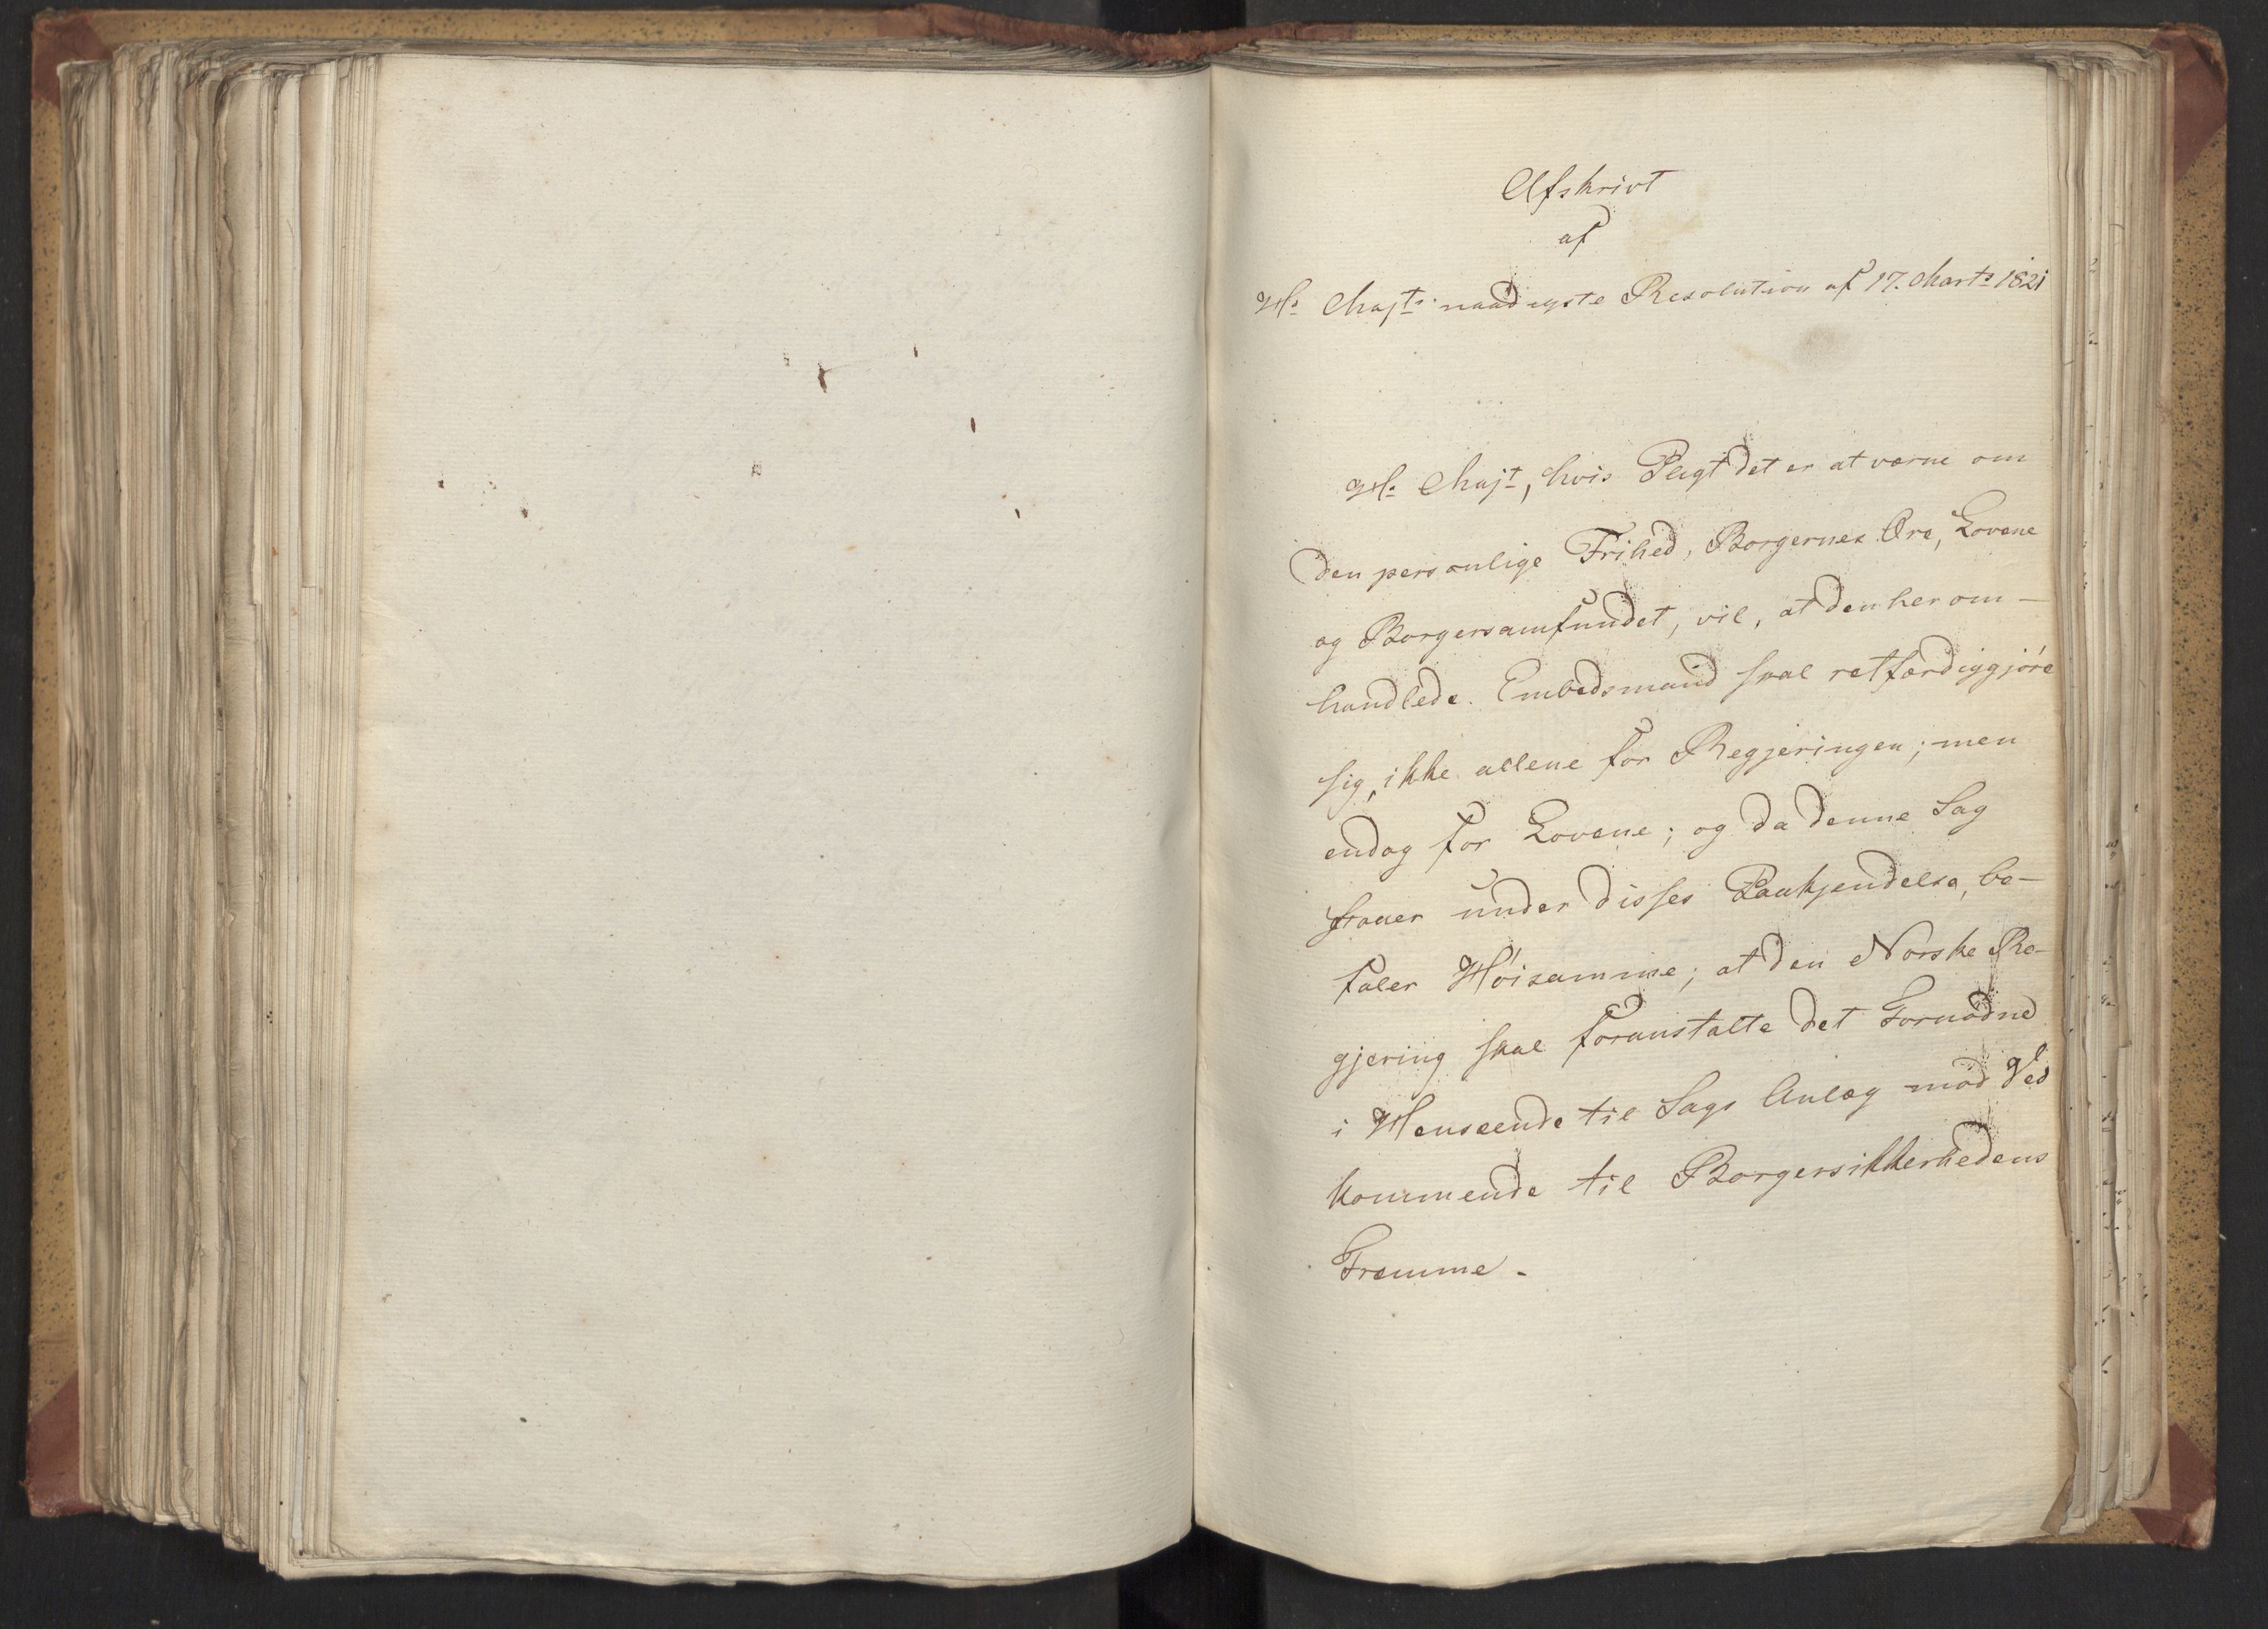 Afskrivt
af
Hs Majts naadigste Resolution af 17. Marts 1821
Hs Majt, hvis Pligt det er at værne om
den personlige Frihed, Borgernes Ære, Lovene
og Borgersamfundet, vil, at den her om-
handlede Embedsmand skal retfærdiggjöre
sig, ikke allene for Regjeringen; men
endog for Lovene; og da denne Sag
staaer under disses Paakjendelse, be-
faler Höisamme; at den Norske Re-
gjering skal foranstalte det Fornödne
i Henseende til Sags Anlæg mod Ved
kommende til Borgersikkerhedens
Fremme.